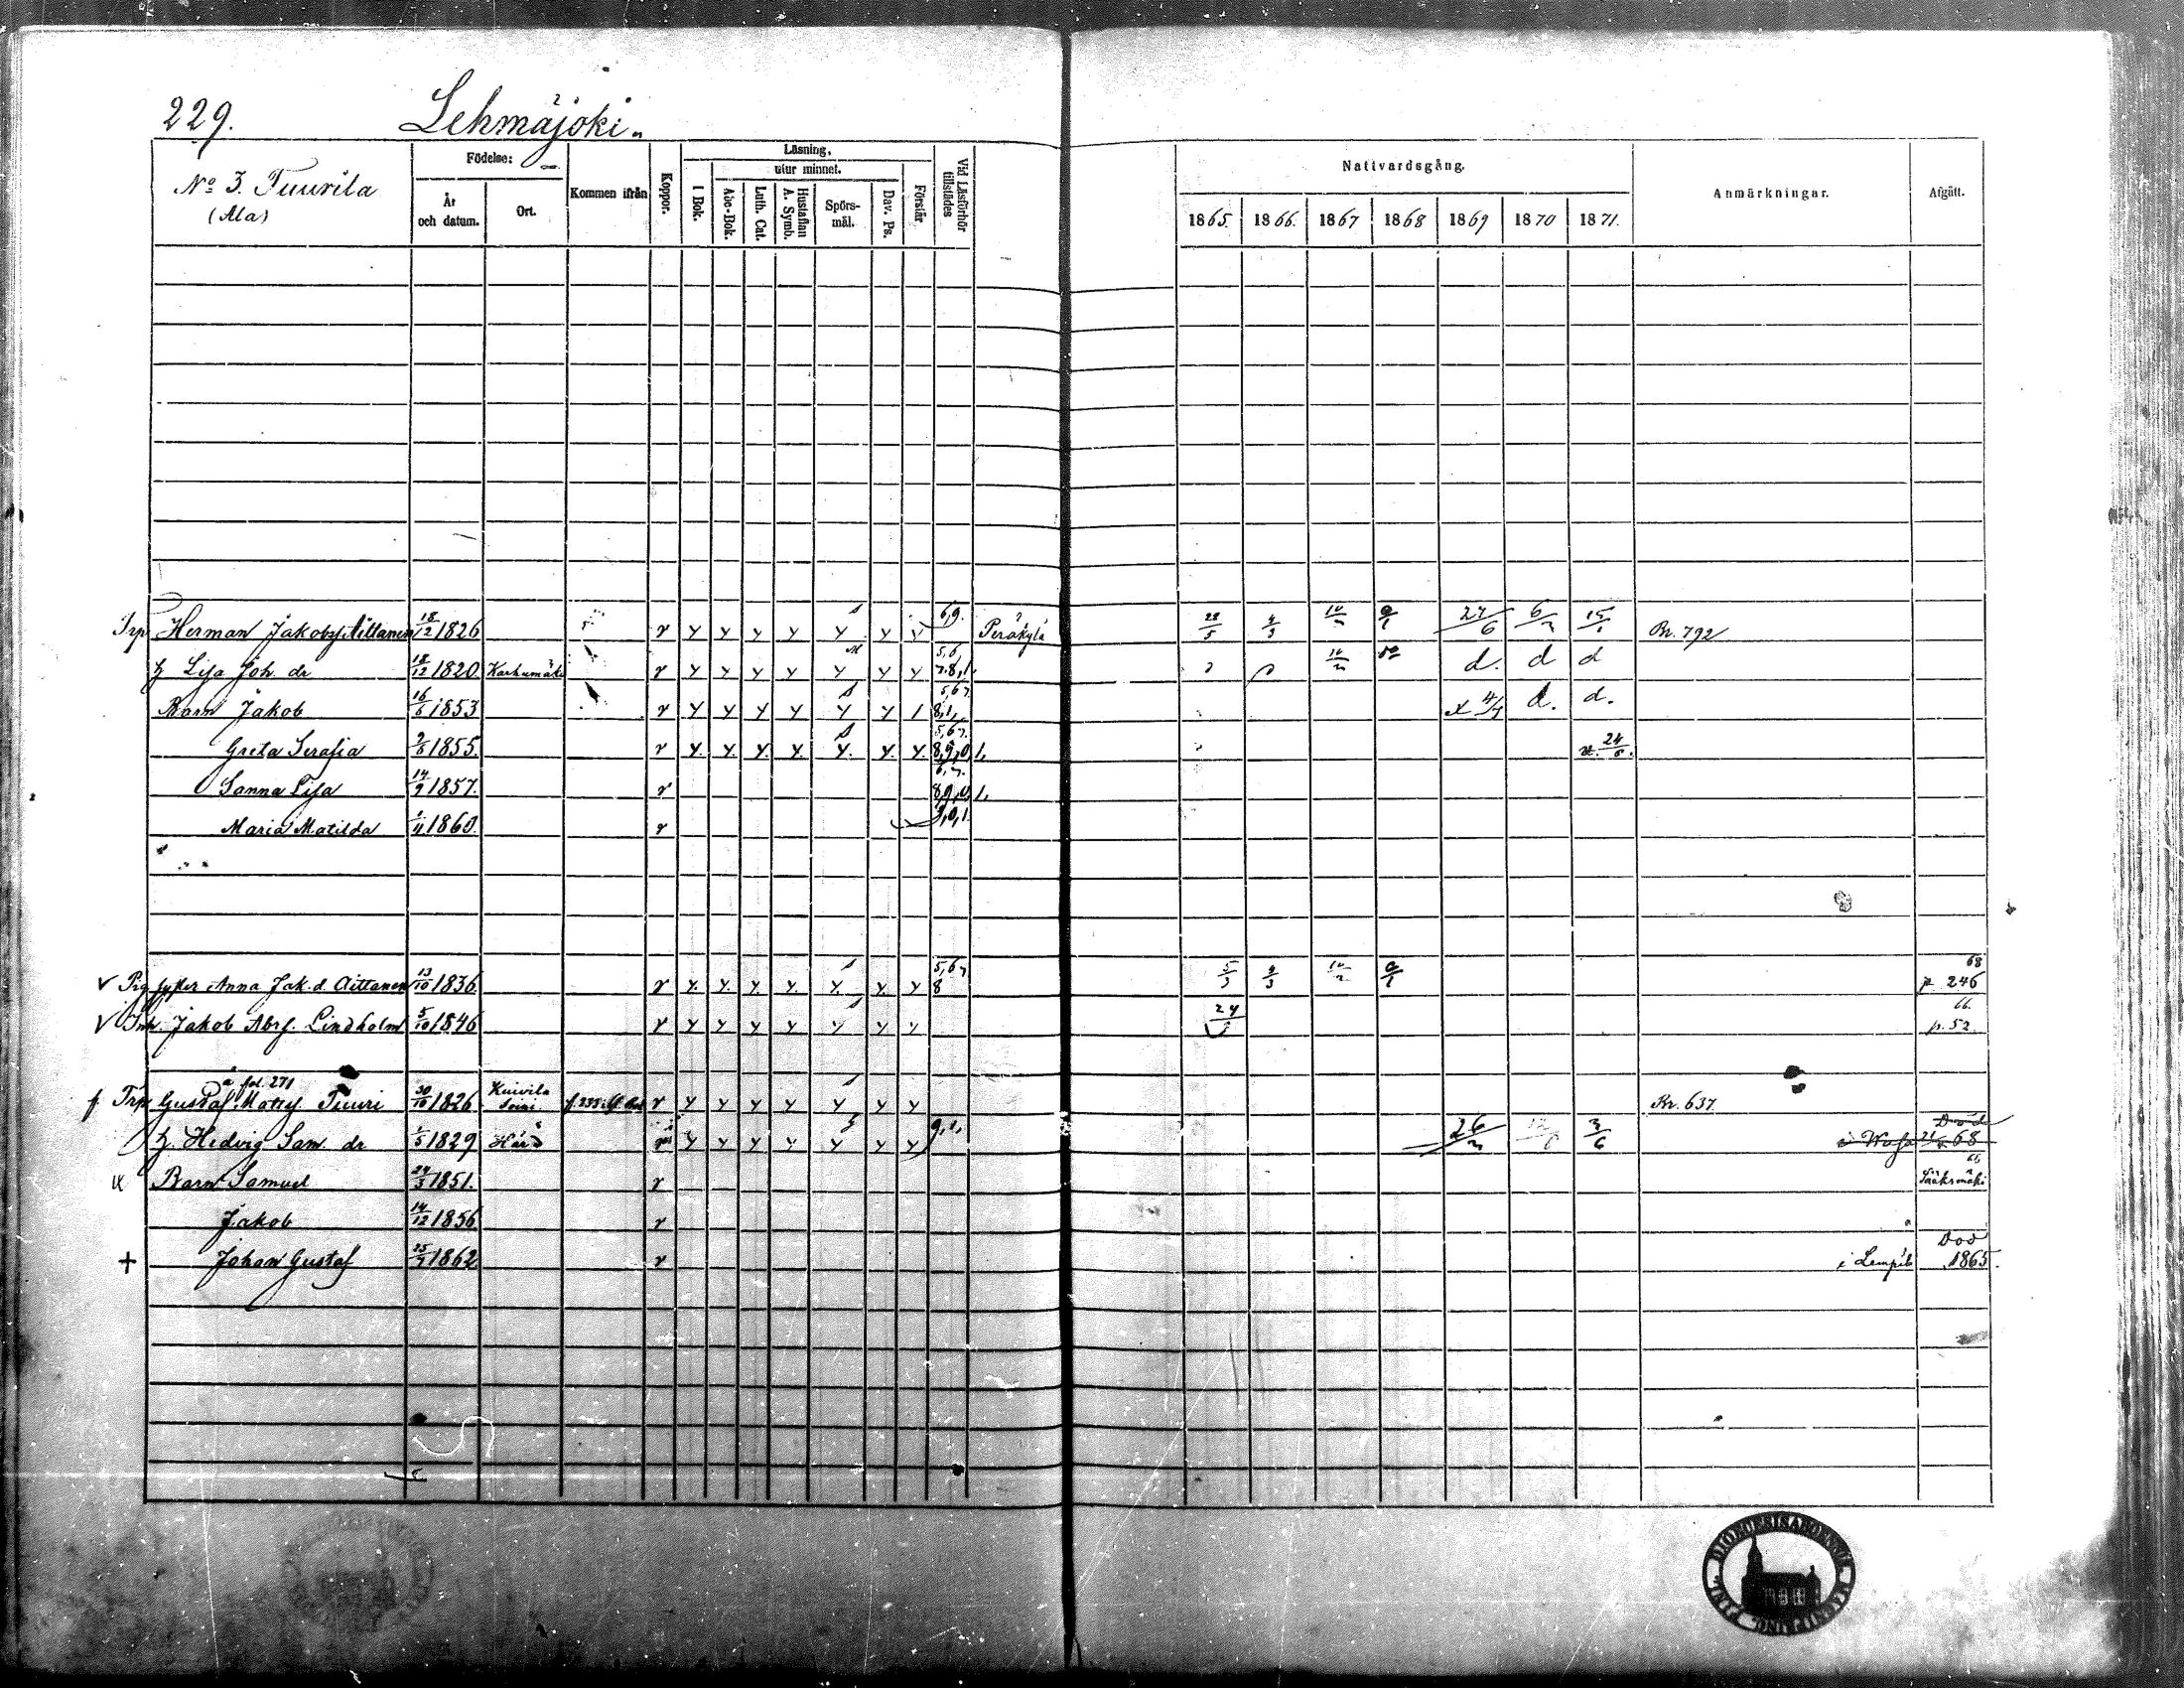 229. Lehmäjoki.
No 3. Tuurila
(Ala)
Födelse:
År och datum.
Ort.
Kommen ifrån
Koppor.
Läsning.
utur minnet.
I Bok.
Abc-Bok.
Luth. Cat.
Hustaflan A. Symb.
Spörs-mål.
Dav. Ps.
Förstår
Vid Läsförhör tillstädes
Nattvardsgång.
1865. 1866. 1867 1868 1869 1870 1871.
Anmärkningar.
Afgått.
Trp Herman Jakobs Aittanen 18/12 1826 v y y y y y y y 6,9. Peräkylä 28/5 4/3 27/6 15/1 Br. 792
h Lisa Joh. dr 18/12 1820. Karhumäki v y y y y y y y 5,6 7.8,1. d. d d
Barn Jakob 16/6 1853 v y y y y y y 1 5,67. 8,1, 4/7 d. d.
Greta Serafia 2/6 1855. v y. y. y. y. y. y. y. 5,67. 8,9,0,1, 24/6.
Sanna Lisa 14/9 1857. v 6,7. 8,9,0,1,
Maria Matilda 1860. v 9,0,1.
v Prg syster Anna Jak. d. Aittanen 13/10 1836. v y. y. y. y. y. y. y 5,67 8 5/3 4/3 68 p 246
v Inh. Jakob Abrs. Lindholm 5/10 1846 v y y y y y y y 66. p. 52.
å fol. 271
f Trp Gustaf Matts Tuuri 30/10 1826 Kuivila Soini v y y y y y y y Br. 637
h. Hedvig Sam. dr 1/5 1829 Härd y y y y y y y 9,1, 26/ 3/6 i Wasa Död 68
Barn Samuel 24/3 1851. v 66 Sääksmäki
Jakob 14/12 1856 v
+ Johan Gustaf 25/9 1862 v i Lempäl Död 1865.